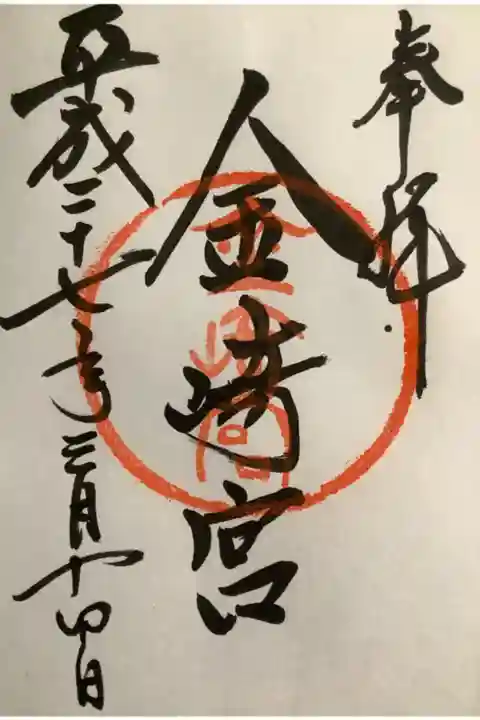 奉拝
金崎宮
平成二十七年三月十四日
金崎宮